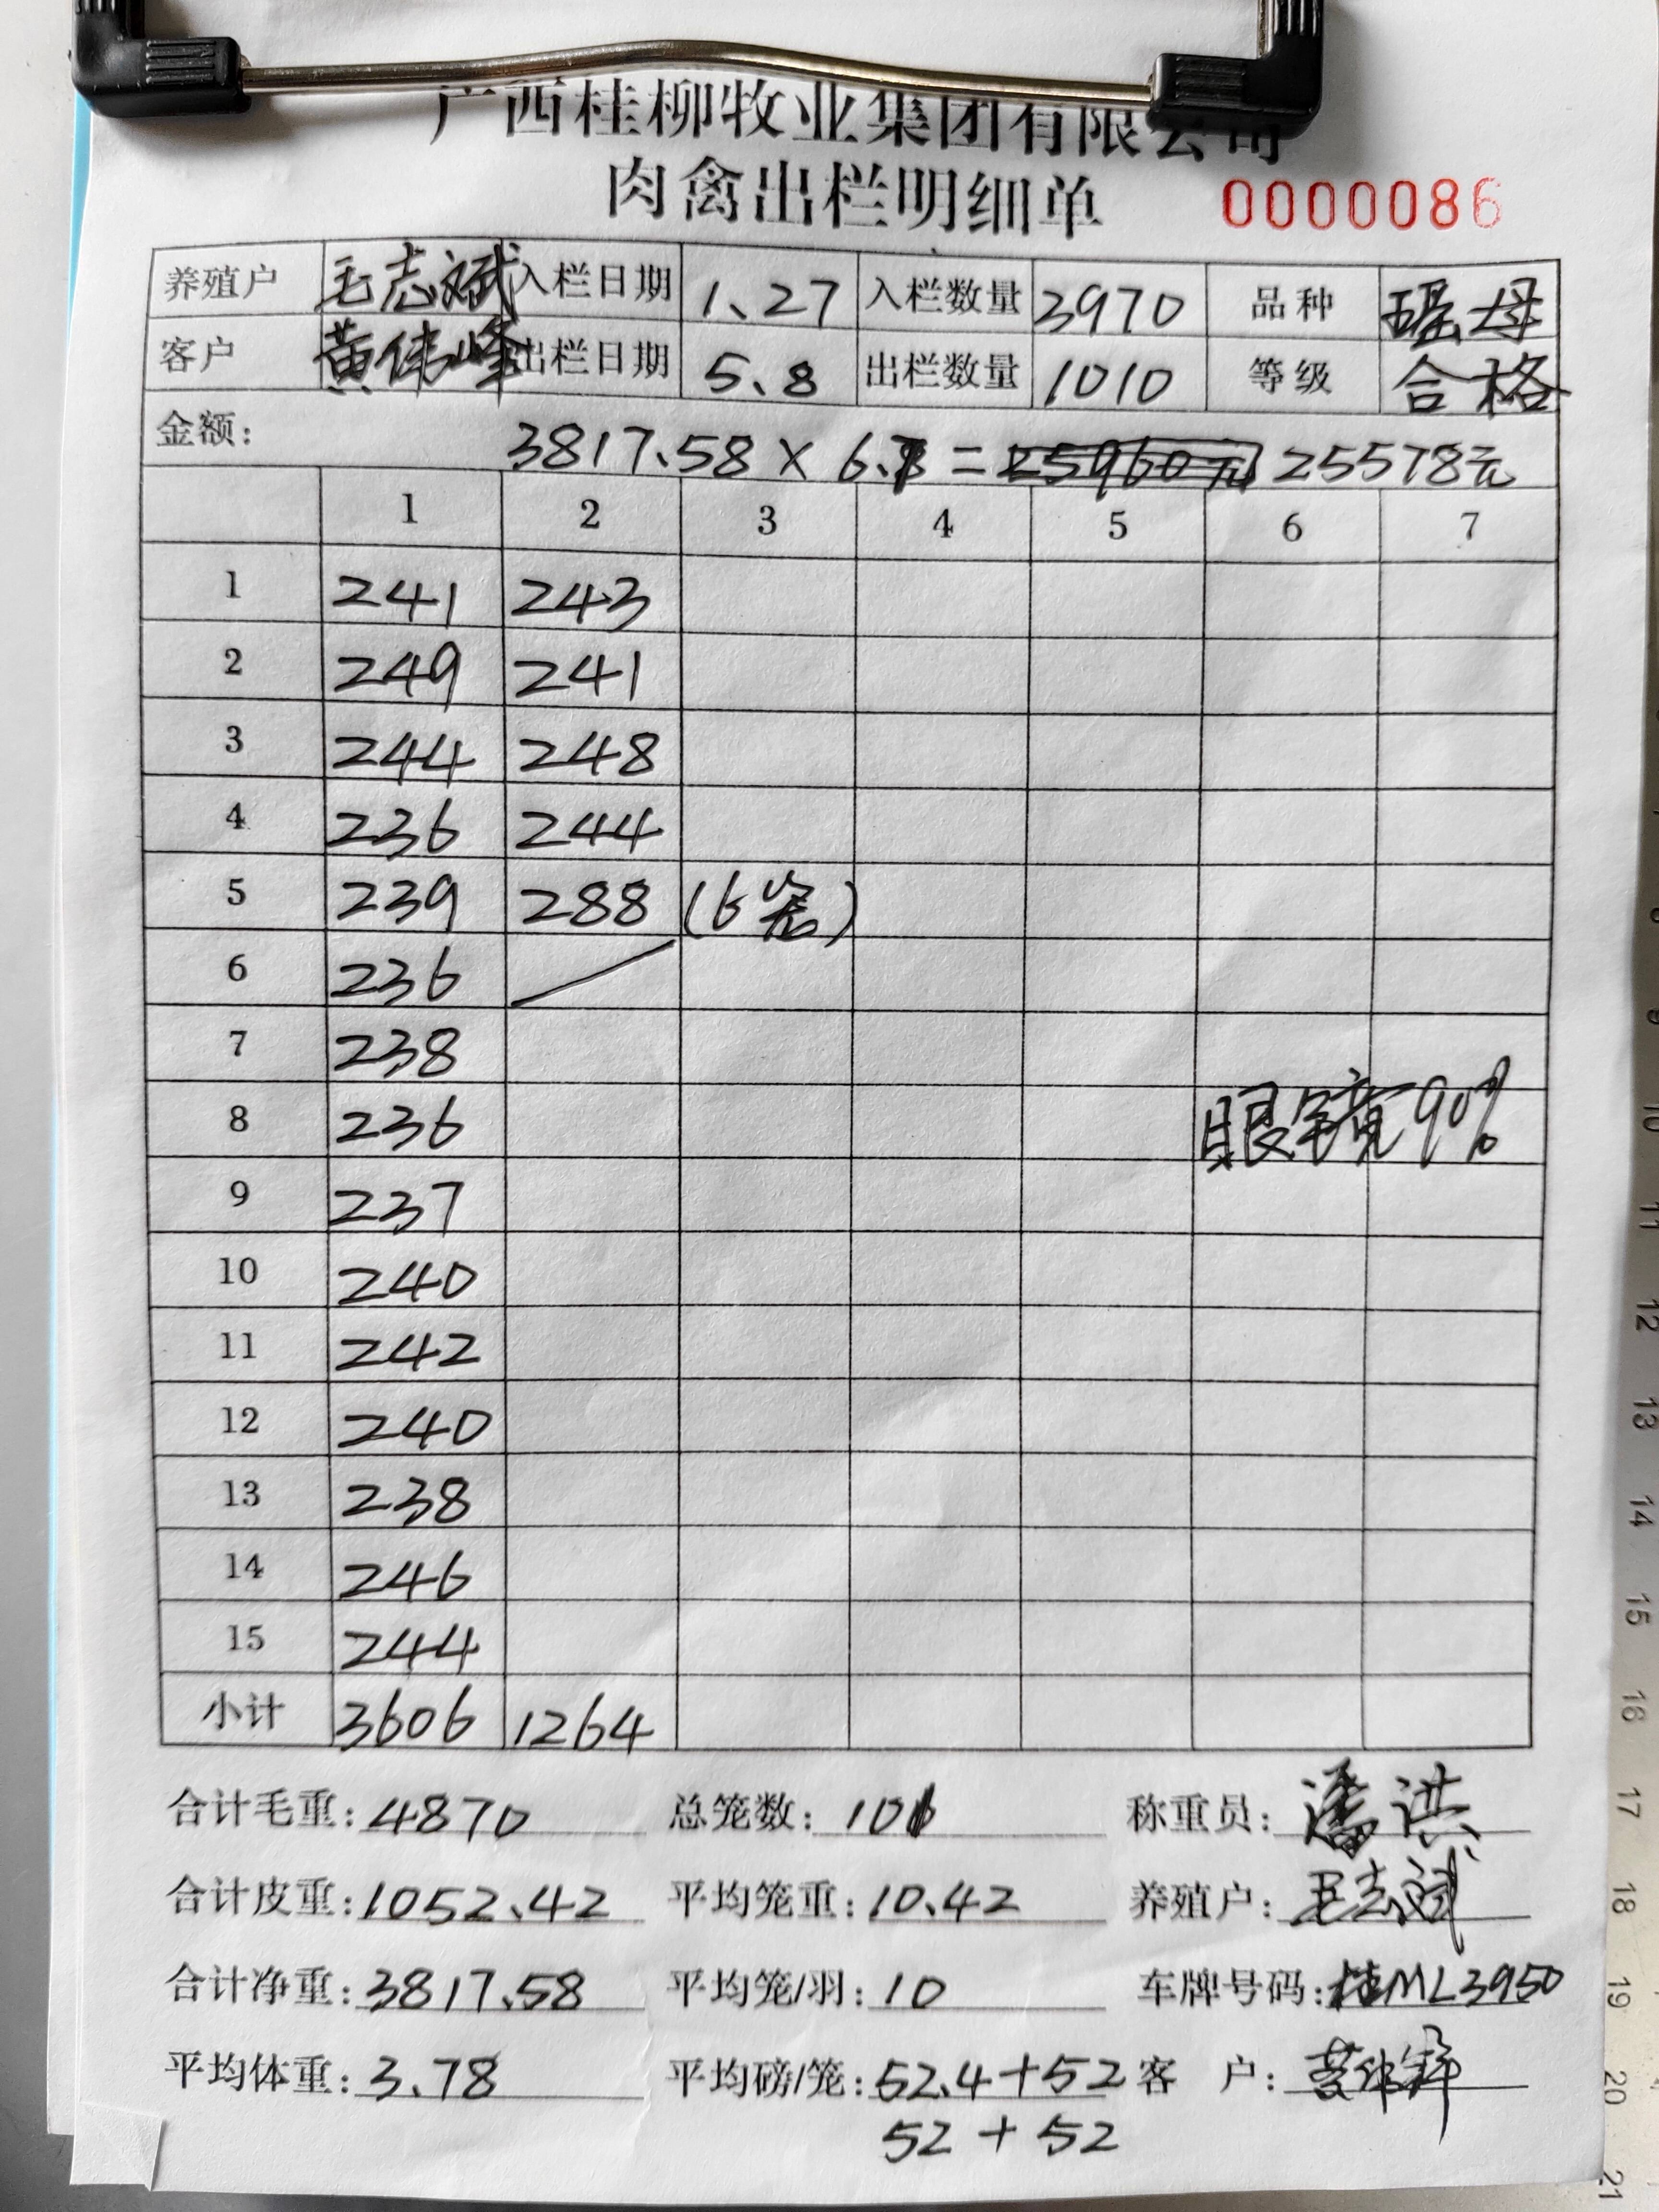 广西桂柳牧业集团有限公司
肉禽出栏明细单 0000086
养殖户 毛志斌 入栏日期 1、27 入栏数量 3970 品种 瑶母
客户 黄伟峰 出栏日期 5、8 出栏数量 1010 等级 合格
金额: 3817、58 × 6、7 = 25960元 25578元
1 2 3 4 5 6 7
1 241 243
2 249 241
3 244 248
4 236 244
5 239 288 (6笼)
6 236
7 238
8 236 眼镜90%
9 237
10 240
11 242
12 240
13 238
14 246
15 244
小计 3606 1264
合计毛重: 4870 总笼数: 101 称重员: 潘洪
合计皮重: 1052、42 平均笼重: 10、42 养殖户: 毛志斌
合计净重: 3817、58 平均笼/羽: 10 车牌号码: 桂ML3950
平均体重: 3、78 平均磅/笼: 52、4+52 客 户: 黄伟锋
52+52
1
9 10 11 12 13 14 15 16 17 18 19 20 21